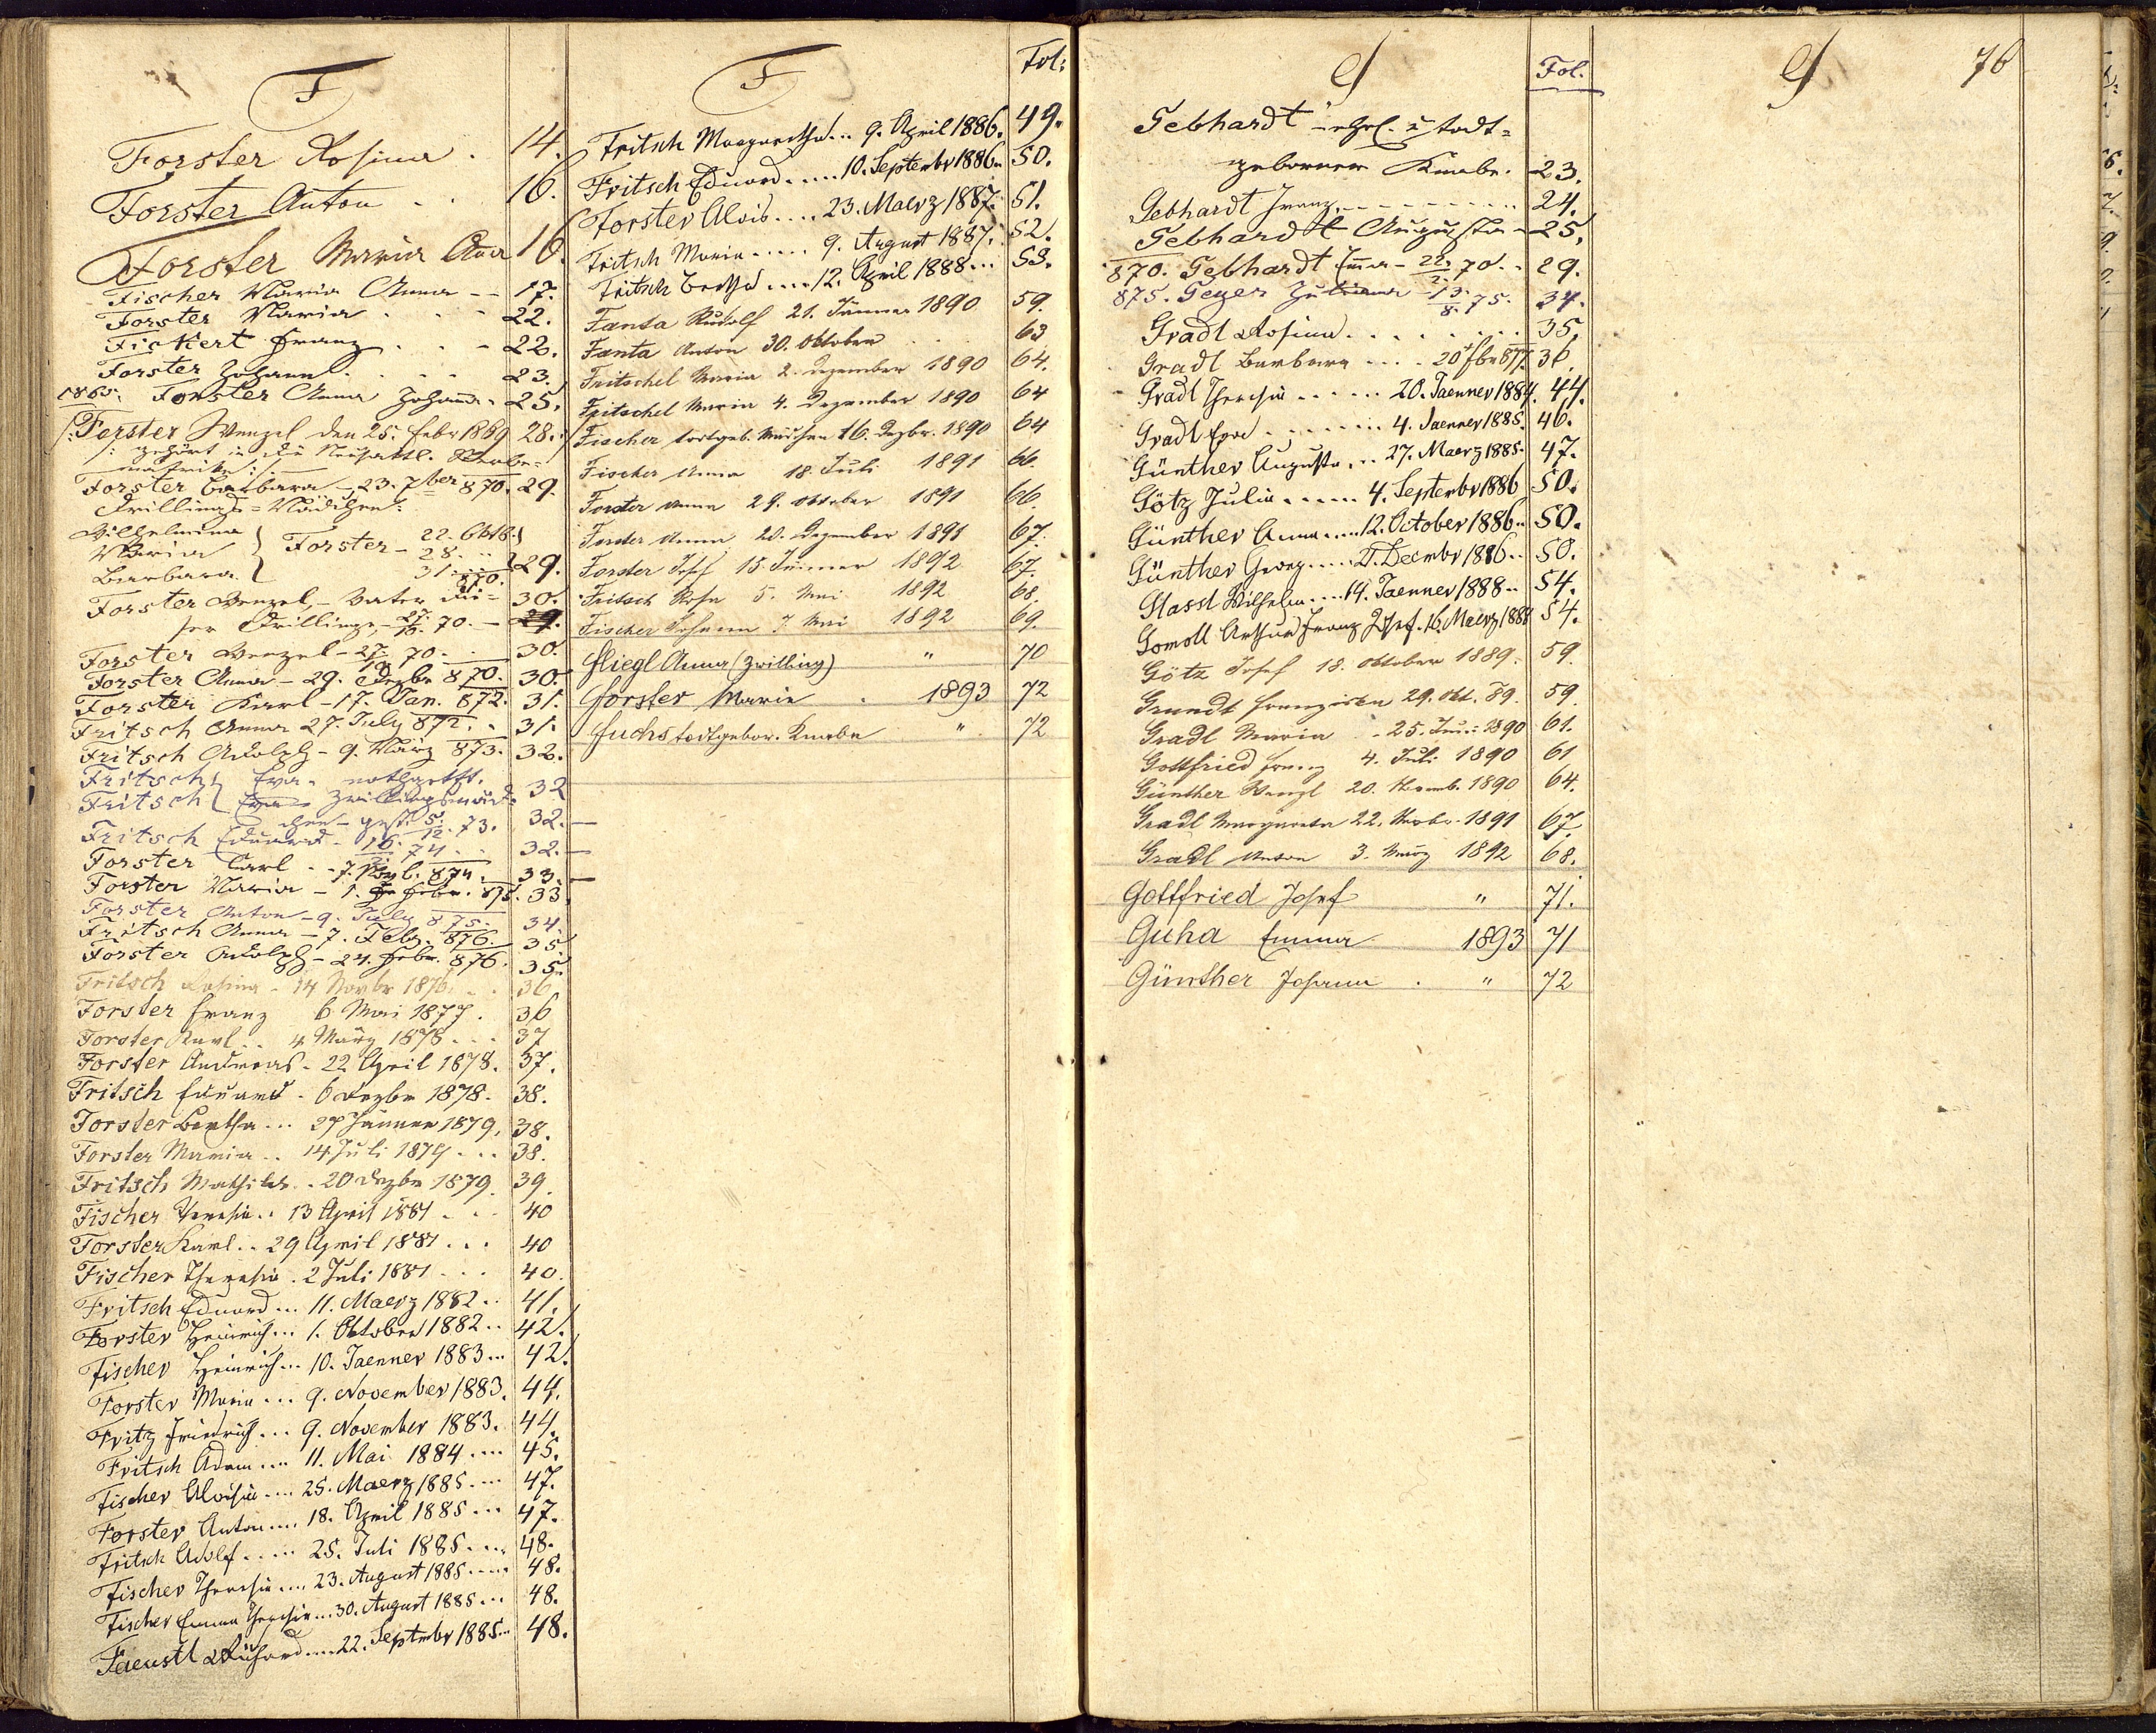 F
Forster Rosina . 14.
Forster Anton . . 16.
Forster Maria Anna 16.
Fischer Maria Anna -- 17.
Forster Maria . . - 22.
Fickert Franz . . - 22.
Forster Johann . . - 23.
1865. Forster Anna Johanna. 25.
/:Forster Wenzel den 25. Febr 1869 28.:/
/: gehört in die
Forster Barbara - 23. 7ber 870. 29.
Drillings-Mädchen:
Wilhelmina 22. Oktb.
Maria Forster - 28. "
Barbara 31. " 870. 29.
Forster Wenzel, - Vater die- 30.
ser Drillinge, - 27/10. 70. - 29.
Forster Wenzel - 27/10 70. - 30.
Forster Anna - 29. Dezbr 870. 30.
Forster Karl - 17. Jan. 872. 31.
Fritsch Anna 27. July 872. . 31.
Fritsch Adolph - 9. März 873. 32.
Fritsch Eva - nothgetft.
Fritsch Eva Zwillingsmäd- 32
chen - gest. 5/12. 73. 32.
Fritsch Eduard - 16/2. 74 . . 32.
Forster Carl - 7. 874. 33.
Forster Maria - 1. Febr. 875. 33.
Forster Anton - 9. July 875. 34.
Fritsch Anna - 7. Feb. 876. 35
Forster Adolph - 24. Febr. 876. 35.
Fritsch Rosina - 14 Novbr 1876. . . 36
Forster Franz 6. Mai 1877. 36
Forster Karl . . 4 März 1878 . . . 37
Forster Andreas - 22 April 1878. 37.
Fritsch Eduard - 6 Dezbr 1878. 38.
Forster Bertha ... 27 Jänner 1879, 38.
Forster Maria . . 14 Juli 1879 . . . 38.
Fritsch Mathilde . . 20 Dezbr 1879. 39.
Fischer Theresia . . 13 April 1881 . . . 40
Forster Karl . . 29 April 1881 . . . 40
Fischer Theresia . 2 Juli 1881 . . . 40.
Fritsch Eduard ... 11. Maerz 1882 .. 41.
Forster Heinrich ... 1. Oktober 1882 .. 42.
Fischer Heinrich ... 10. Jaenner 1883 ... 42.
Forster Maria ... 9. November 1883. 44.
Fritz Friedrich ... 9. November 1883. 44.
Fritsch Adam .... 11. Mai 1884 .... 45.
Fischer Aloisia .... 25. Maerz 1885 .... 47.
Forster Anton .... 18. April 1885 ... 47.
Fritsch Adolf ..... 25. Juli 1885 .... 48.
Fischer Theresia .... 23. August 1885 ..... 48.
Fischer Emma Theresia ... 30. August 1885 ... 48.
Faeustl Richard .... 22. Septembr 1885 ... 48.
F Fol:
Fritsch Margaretha ... 9. April 1886. 49.
Fritsch Eduard ..... 10. Septembr 1886. 50.
Forster Alois .... 23. Maerz 1887. 51.
Fritsch Maria ..... 9. August 1887. 52.
Fritsch Bertha .... 12. April 1888 ... 53.
Fanta Rudolf 21. Jänner 1890 59.
Fanta Anton 30. Oktober . . 63
Fritschel Maria 2. Dezember 1890 64.
Fritschel Maria 4. Dezember 1890 64
Fischer todtgeb. Mädchen 16. Dezbr. 1890 64
Fischer Anna 18. Juli 1891 66.
Forster Anna 29. Oktober 1891 66.
Forster Anna 20. Dezember 1891 67.
Forster Josef 15. Jänner 1892 67.
Fritsch Rosa 5. Mai 1892 68.
Fischer Johann 7. Mai 1892 69.
Fliegl Anna (Zwilling) " 70
Forster Marie . 1893 72
Fuchs todtgebor. Knabe " 72
G Fol.
Gebhardt - ehel. u todt=
geborener Knabe. 23.
Gebhardt Franz. - - - - - - - - - 24.
Gebhardt Augusta - 25.
870. Gebhardt Emma - 22./2. 70. . 29.
875. Geyer Juliana - 13./8. 75. 34.
Gradl Rosina . . . . . . . . 35.
Gradl Barbara .... 20 877. 36.
Gradl Theresia ...... 20. Jaenner 1884. 44.
Gradl Eva ........ 4. Jaenner 1885. 46.
Günther Augusta ... 27. Maerz 1885. 47.
Götz Julia ...... 4. Septembr 1886 50.
Günther Anna .... 12. October 1886 .. 50.
Günther Georg ..... 2. Decembr 1886 .. 50.
Glassl Wilhelm .... 14. Jaenner 1888 .. 54.
Gomoll Arthur Franz Josef. 16. Maerz 1888 54.
Götz Josef 18. Oktober 1889. 59.
Grundt Franziska 29. Okt. 89. 59.
Gradl Maria - 25. 1890 61.
Gottfried Franz 4. Juli 1890 61
Günther Wenzl 20. Novemb. 1890 64.
Gradl Margareta 22. Novbr. 1891 67.
Gradl Anton 3. März 1892 68.
Gottfried Josef " 71.
Guha Emma 1893 71
Günther Johann . " 72
G 76